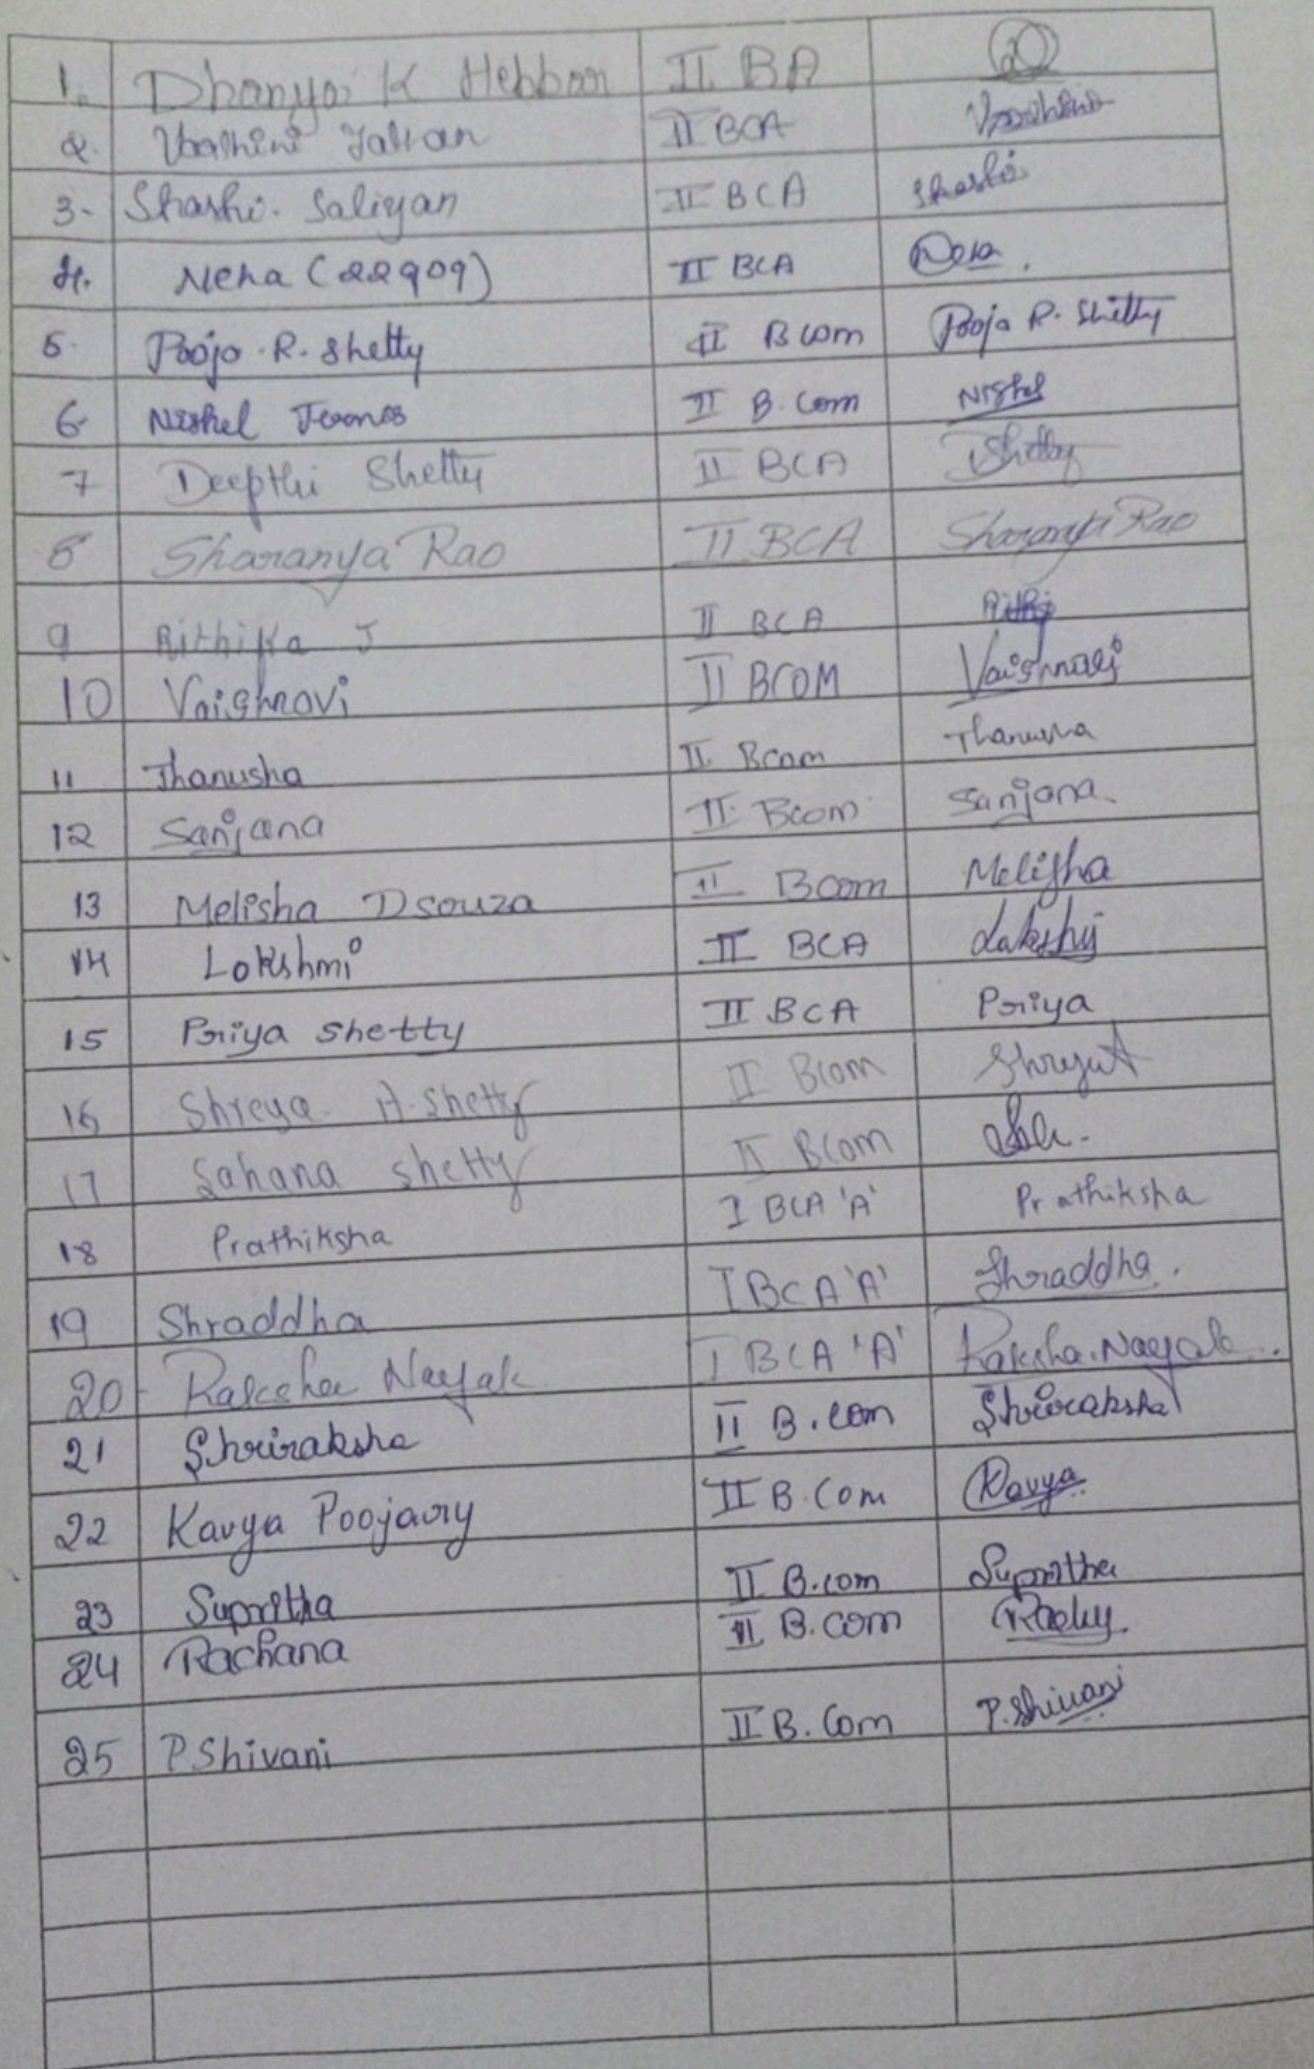 1. Dhanya K Hebbar II BA
2. Varshini Jathan II BCA Varshini
3- Shashi. Saliyan II BCA Shashi
4. Neha (22909) II BCA Neha.
5. Pooja .R. Shetty II Bcom Pooja R. Shetty
6. Nishel II B.com Nishel
7 Deepthi Shetty II BCA DShetty
8 Sharanya Rao II BCA Sharanya Rao
9 Rithika J II BCA
10 Vaishnavi II BCOM Vaishnavi
11 Thanusha II Bcom Thanusha
12 Sanjana II Bcom Sanjana.
13 Melisha Dsouza II Bcom Melisha
14 Lakshmi II BCA
15 Priya Shetty II BCA Priya
16 Shreya. A. Shetty II Bcom
17 Sahana Shetty II Bcom
18 Prathiksha I BCA 'A' Prathiksha
19 Shraddha I BCA 'A' Shraddha.
20 Raksha Nayak I BCA 'A' Raksha.Nayak..
21 Shriraksha II B.com Shriraksha
22 Kavya Poojary II B.Com Kavya
23 Supritha II B.com Supritha
24 Rachana II B.com
25 P Shivani II B.Com P.Shivani